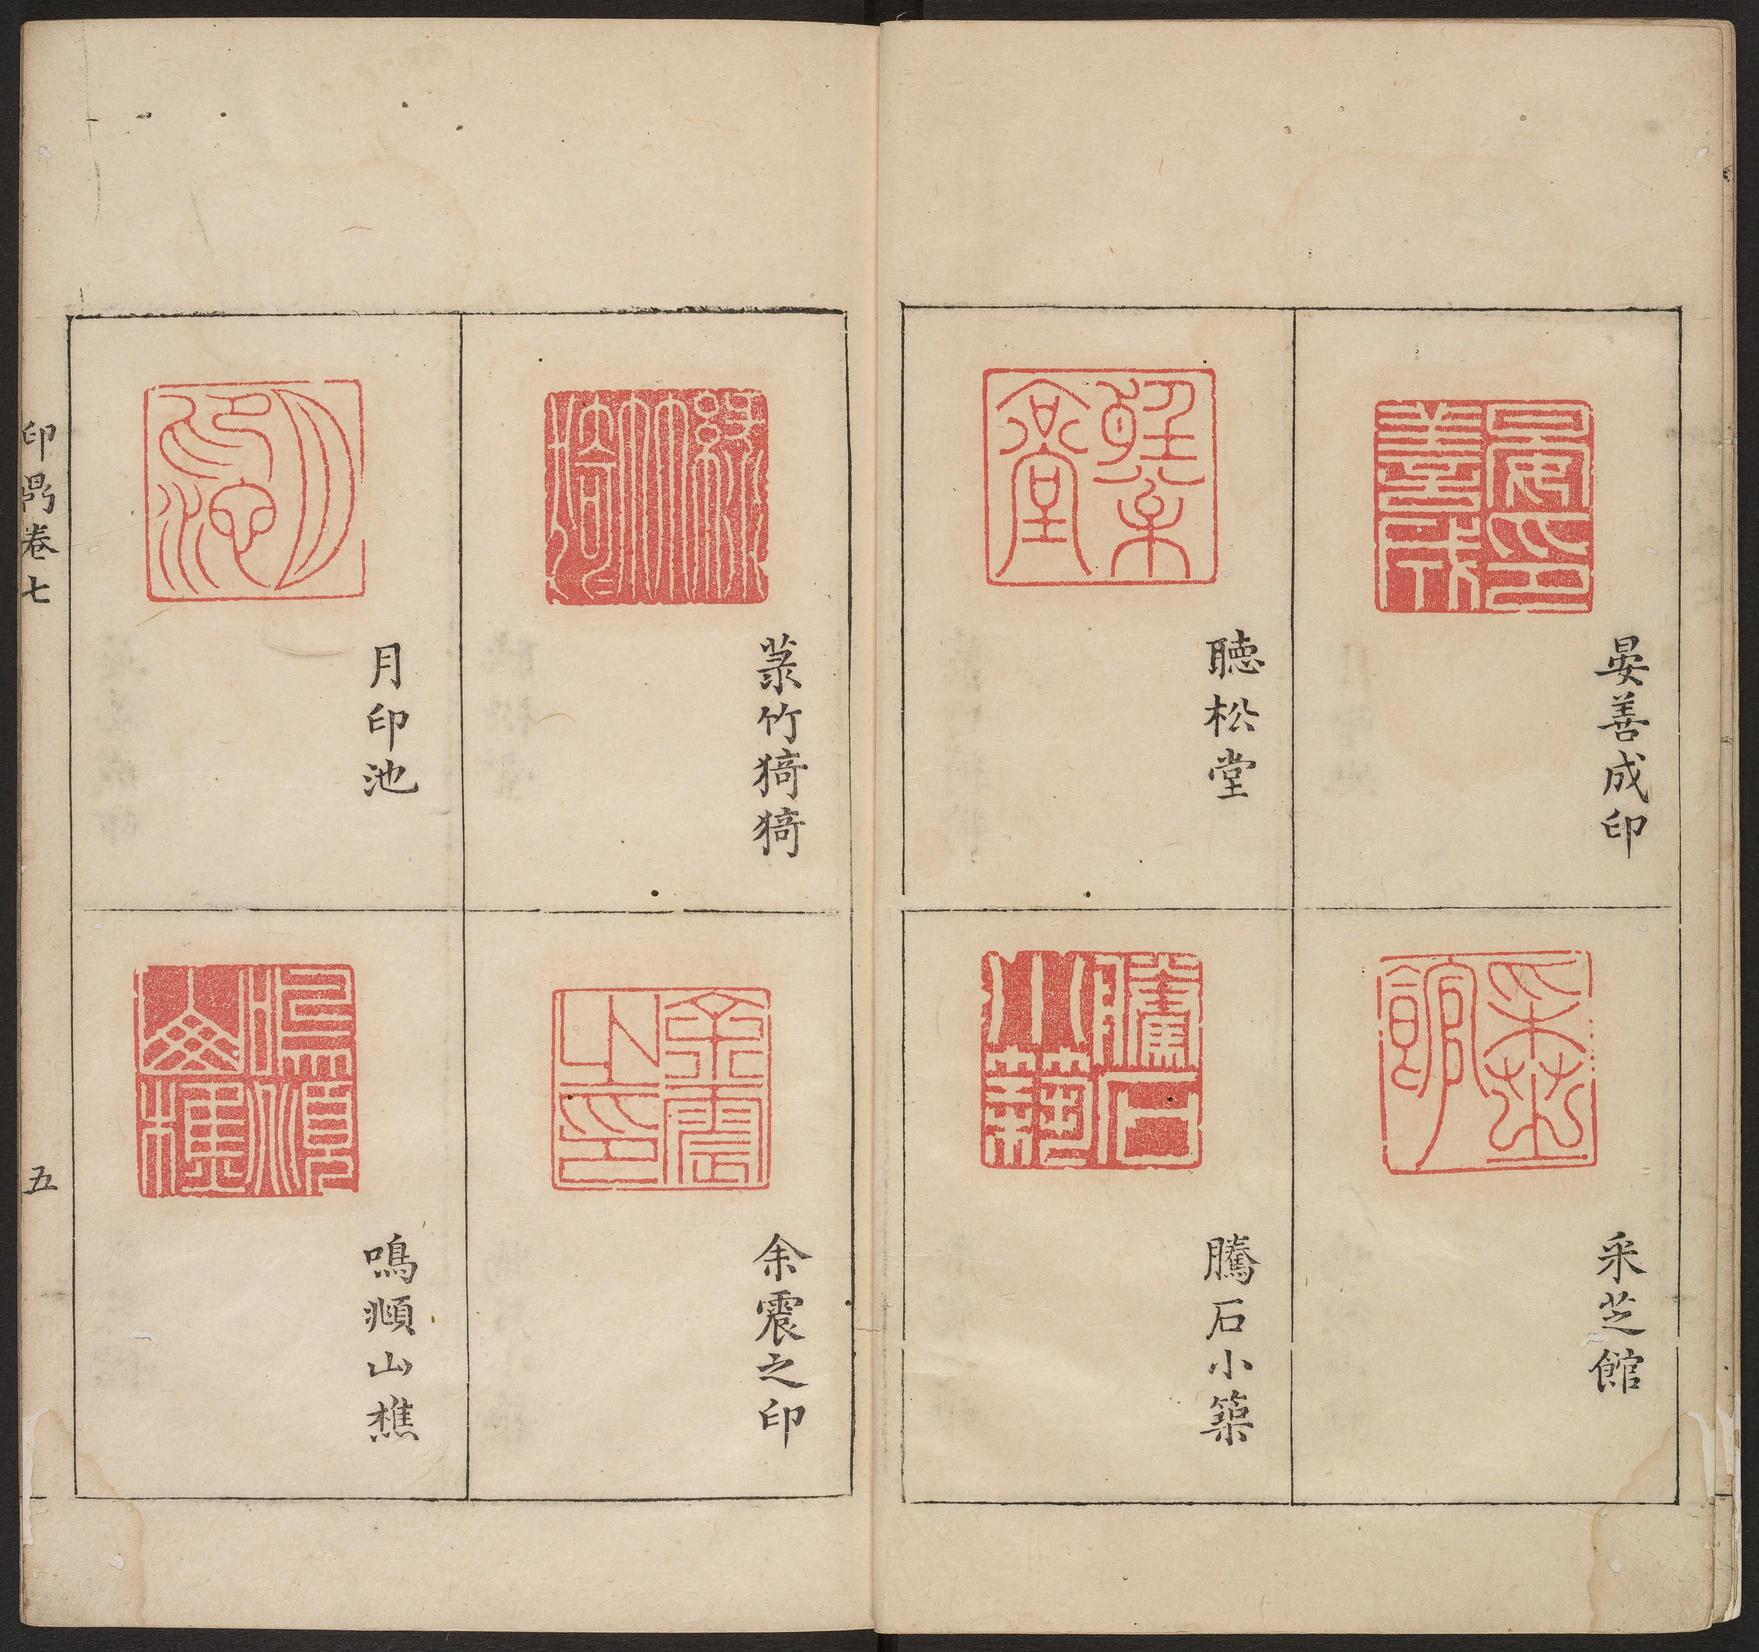 晏善成印
采芝館
聽松堂
騰石小築
菉竹猗猗
余震之印
月印池
鳴順山樵
印
卷七
五